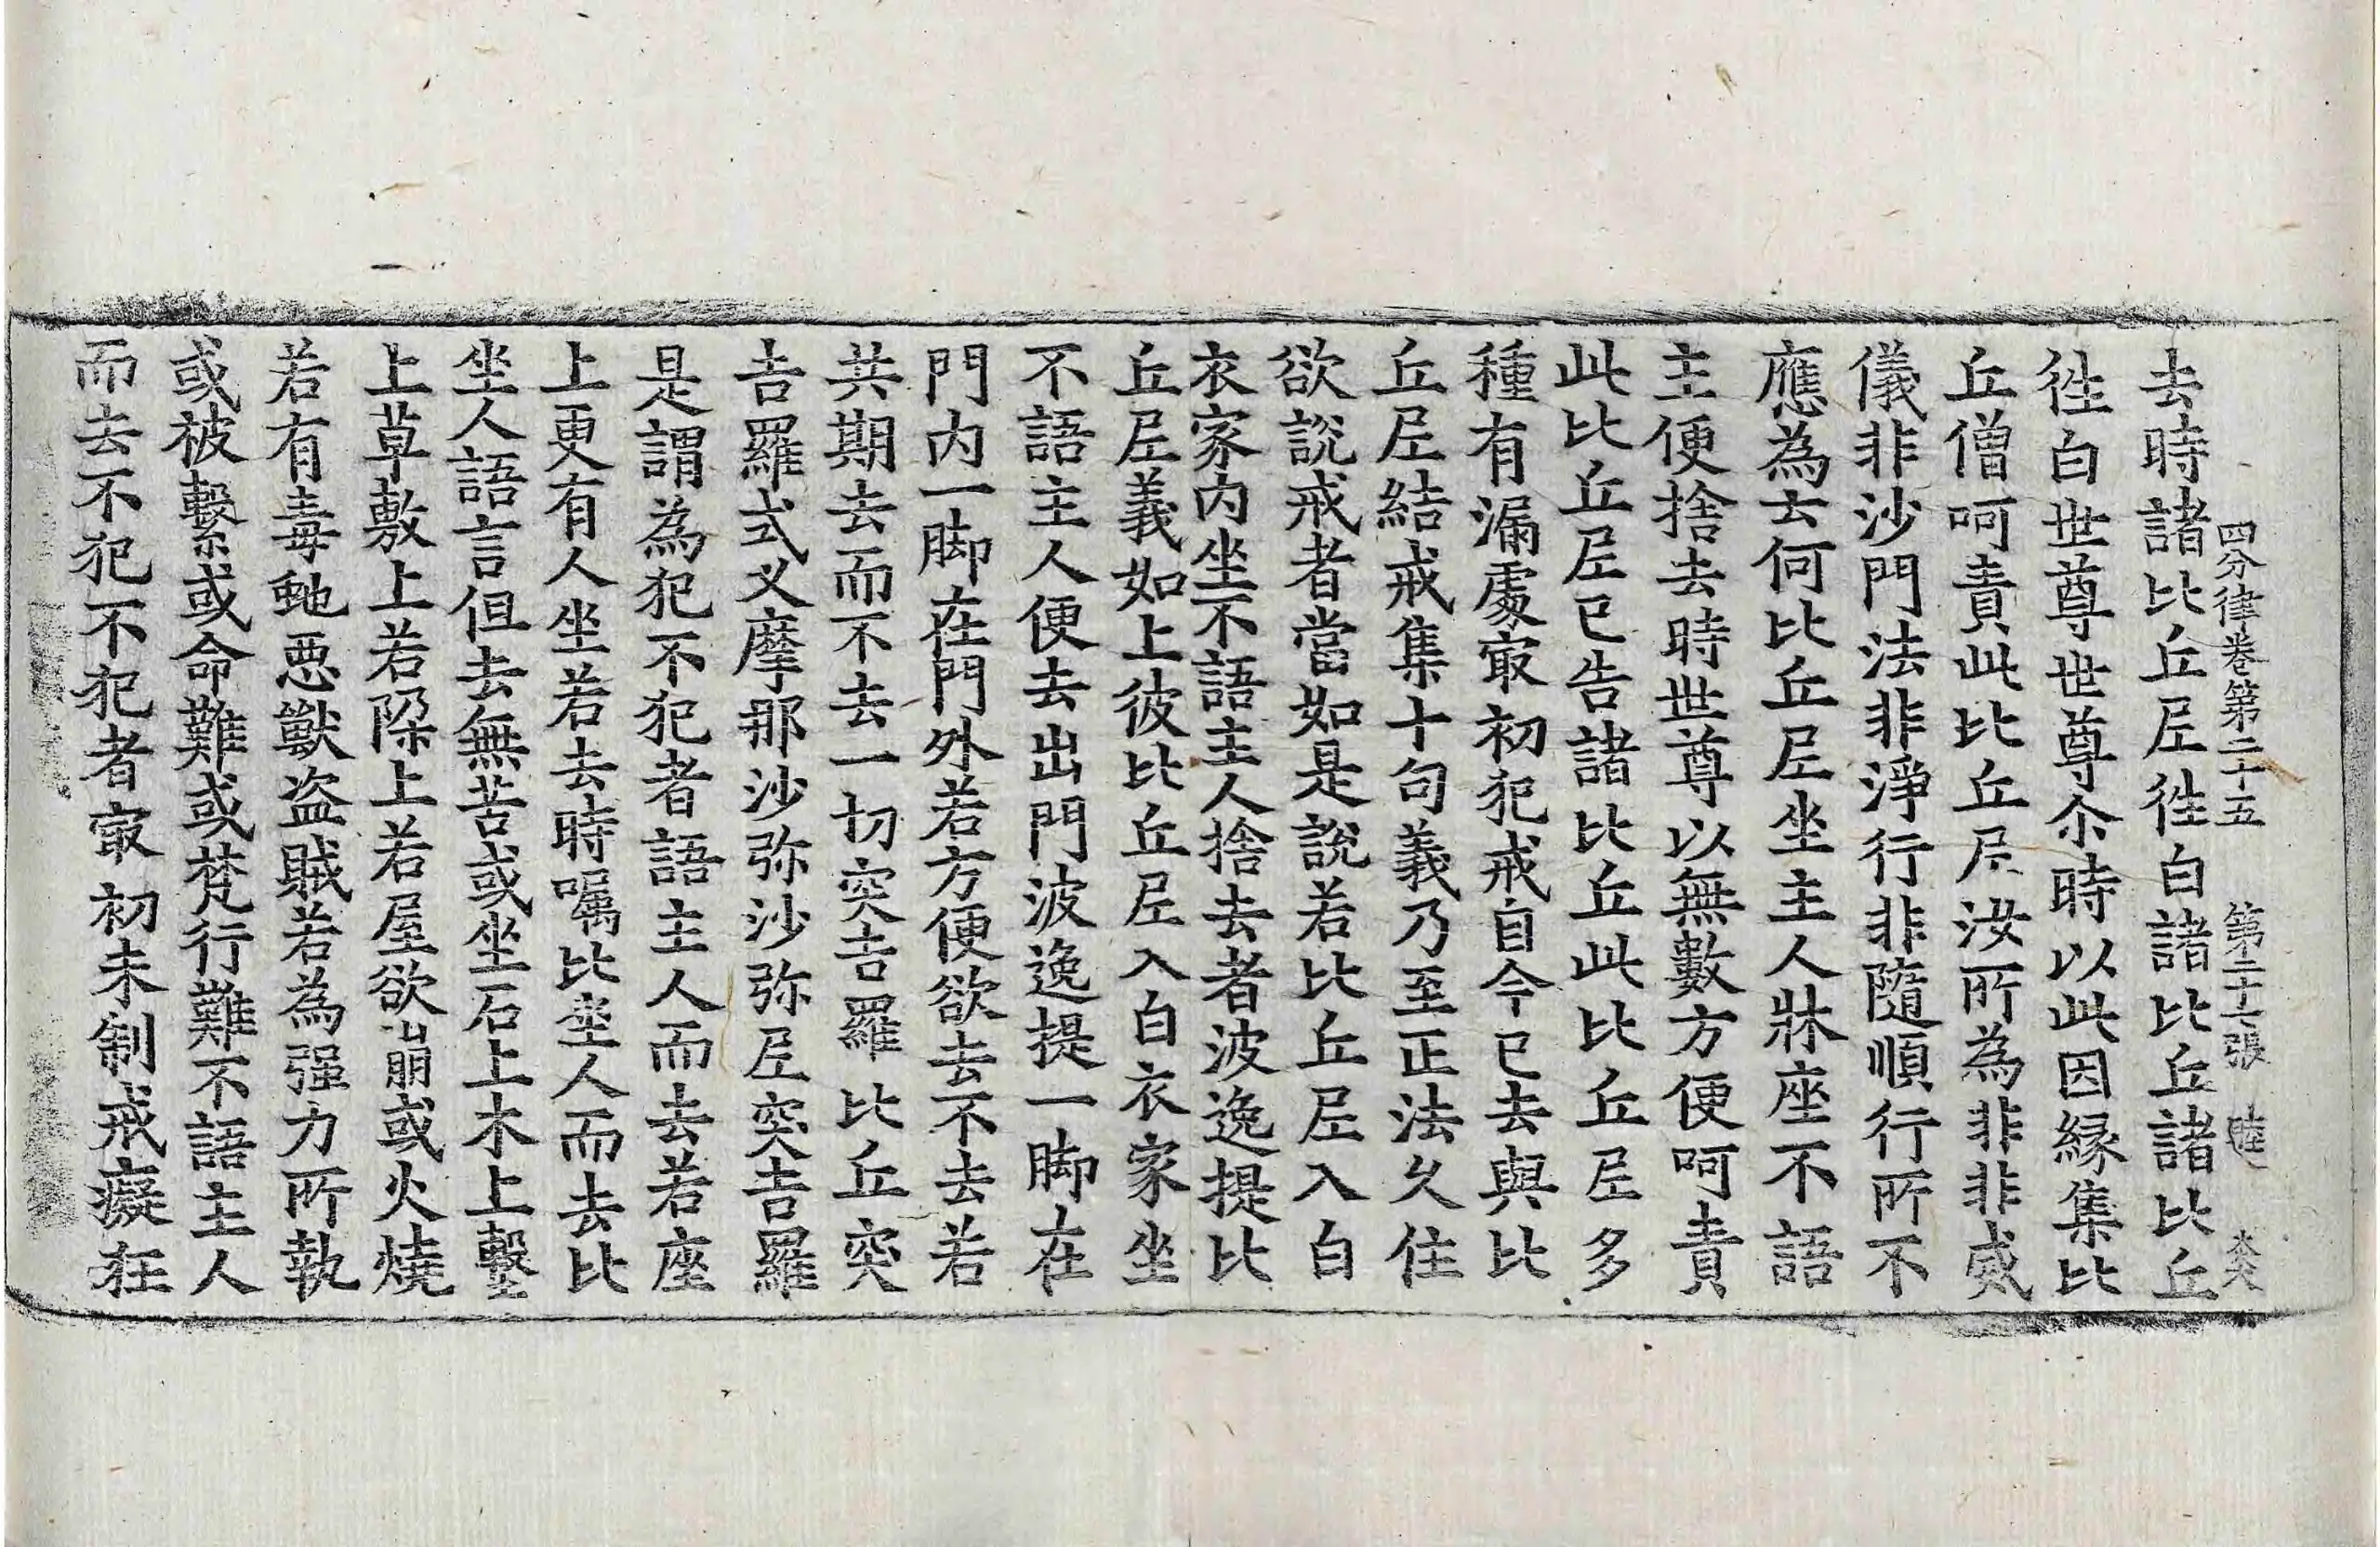 四分律卷第二十五　第二十七張　睦
去時諸比丘尼徃白諸比丘諸比丘
徃白世尊世尊尒時以此因縁集比
丘僧呵責此比丘尼汝所為非非威
儀非沙門法非淨行非隨順行所不
應為云何比丘尼坐主人牀座不語
主便捨去時世尊以無數方便呵責
此比丘尼已告諸比丘此比丘尼多
種有漏處㝡初犯戒自今已去與比
丘尼結戒集十句義乃至正法久住
欲說戒者當如是說若比丘尼入白
衣家內坐不語主人捨去者波逸提比
丘尼義如上彼比丘尼入白衣家坐
不語主人便去出門波逸提一脚在
門内一脚在門外若方便欲去不去若
共期去而不去一切突吉羅比丘突
吉羅式叉摩那沙弥沙弥尼突吉羅
是謂為犯不犯者語主人而去若座
上更有人坐若去時囑比坐人而去比
坐人語言但去無苦或坐石上木上墼
上草敷上若埵上若屋欲崩或火燒
若有毒虵惡獸盜賊若為强力所執
或被繫或命難或梵行難不語主人
而去不犯不犯者㝡初未制戒癡狂